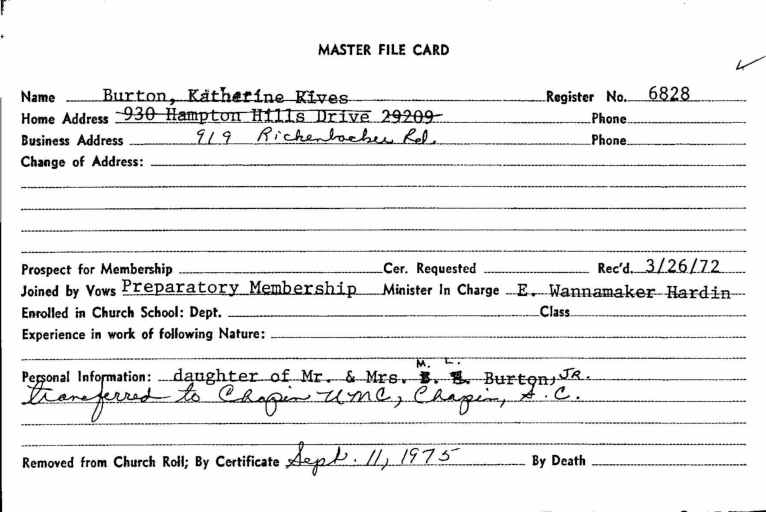 MASTER FILE CARD
Name Burton, Katherine Kives Register No. 6828
Home Address 930 Hampton Hills Drive 29209 Phone
Business Address 919 Rickenbacker Rd. Phone
Change of Address:
Prospect for Membership Cer. Requested Rec'd. 3/26/72
Joined by Vows Preparatory Membership Minister In Charge E. Wannamaker Hardin
Enrolled in Church School: Dept. Class
Experience in work of following Nature:
M. L.
Personal Information: daughter of Mr. & Mrs. Burton, JR.
transferred to Chapin UMC, Chapin, S.C.
Removed from Church Roll; By Certificate Sept. 11, 1975 By Death